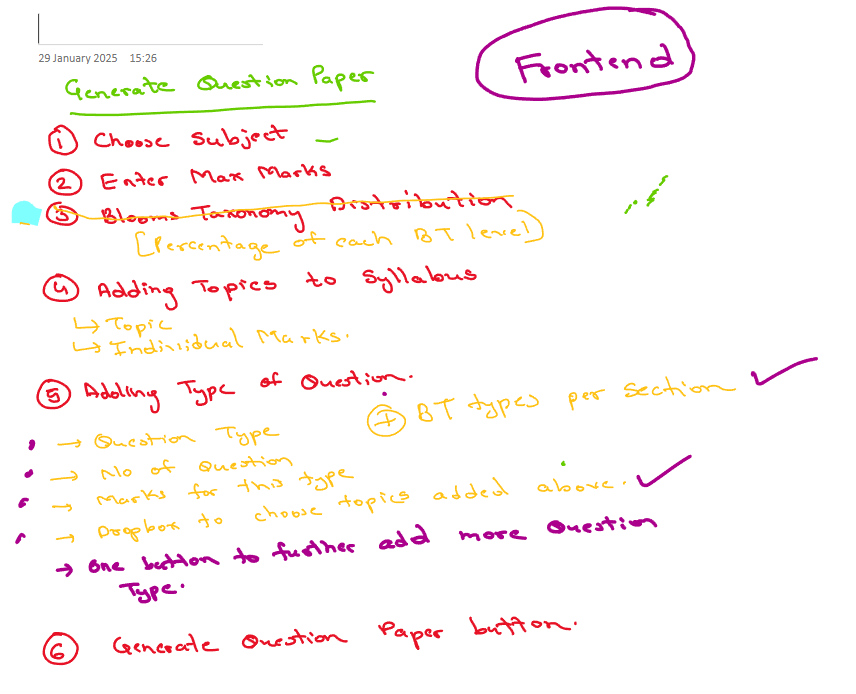 29 January 2025 15:26
Frontend
Generate Question Paper
1 Choose Subject
2 Enter Max Marks
3 Blooms Taxonomy Distribution
[Percentage of each BT level]
4 Adding Topics to Syllabus
↳ Topic
↳ Individual Marks.
5 Adding Type of Question.
+ BT types per section ✓
→ Question Type
→ No of Question
→ Marks for this type
→ Dropbox to choose topics added above. ✓
→ One button to further add more Question
Type.
6 Generate Question Paper button.